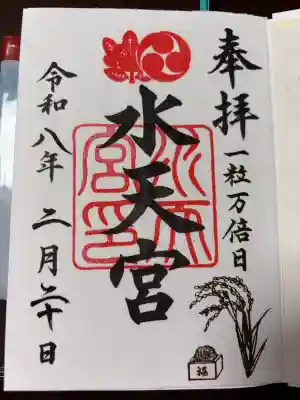 奉拝 一粒万倍日
水天宮
水天
宮印
令和八年 二月二十日
福